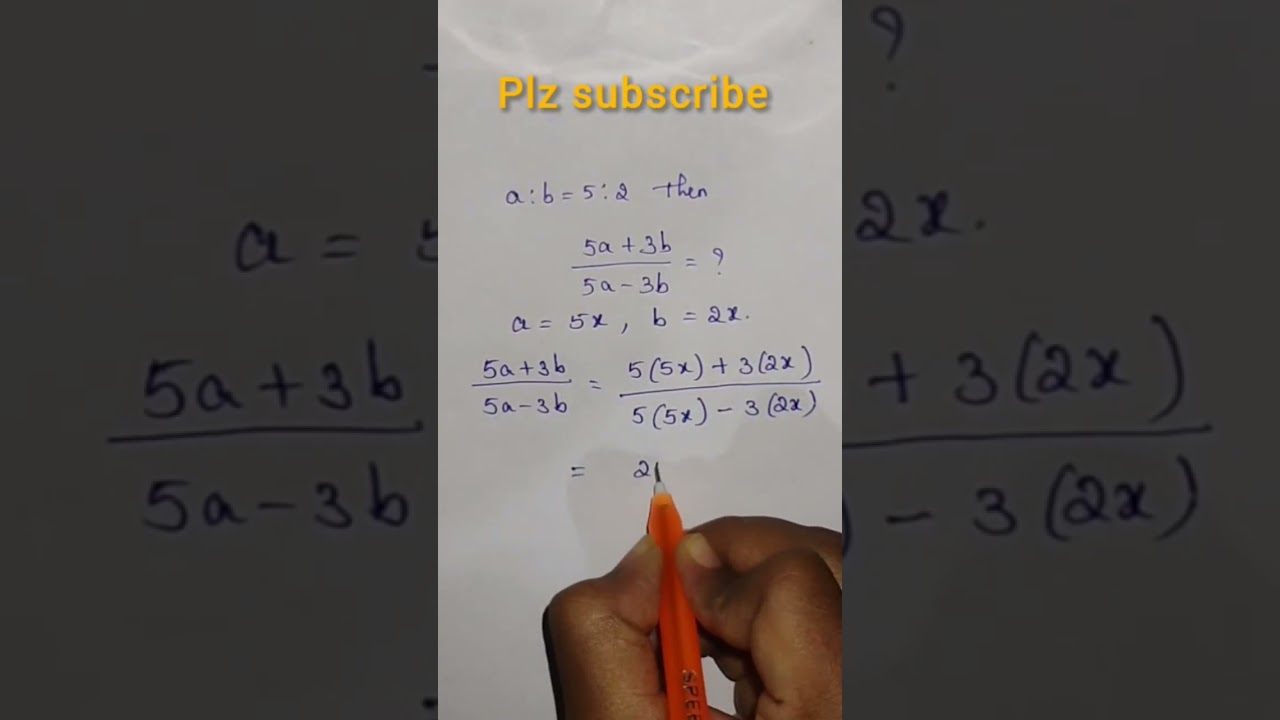 Plz subscribe
a:b = 5:2 then
5a+3b
5a-3b
= ?
a = 5x, b = 2x.
5a+3b
5a-3b
=
5(5x)+3(2x)
5(5x)-3(2x)
= 2